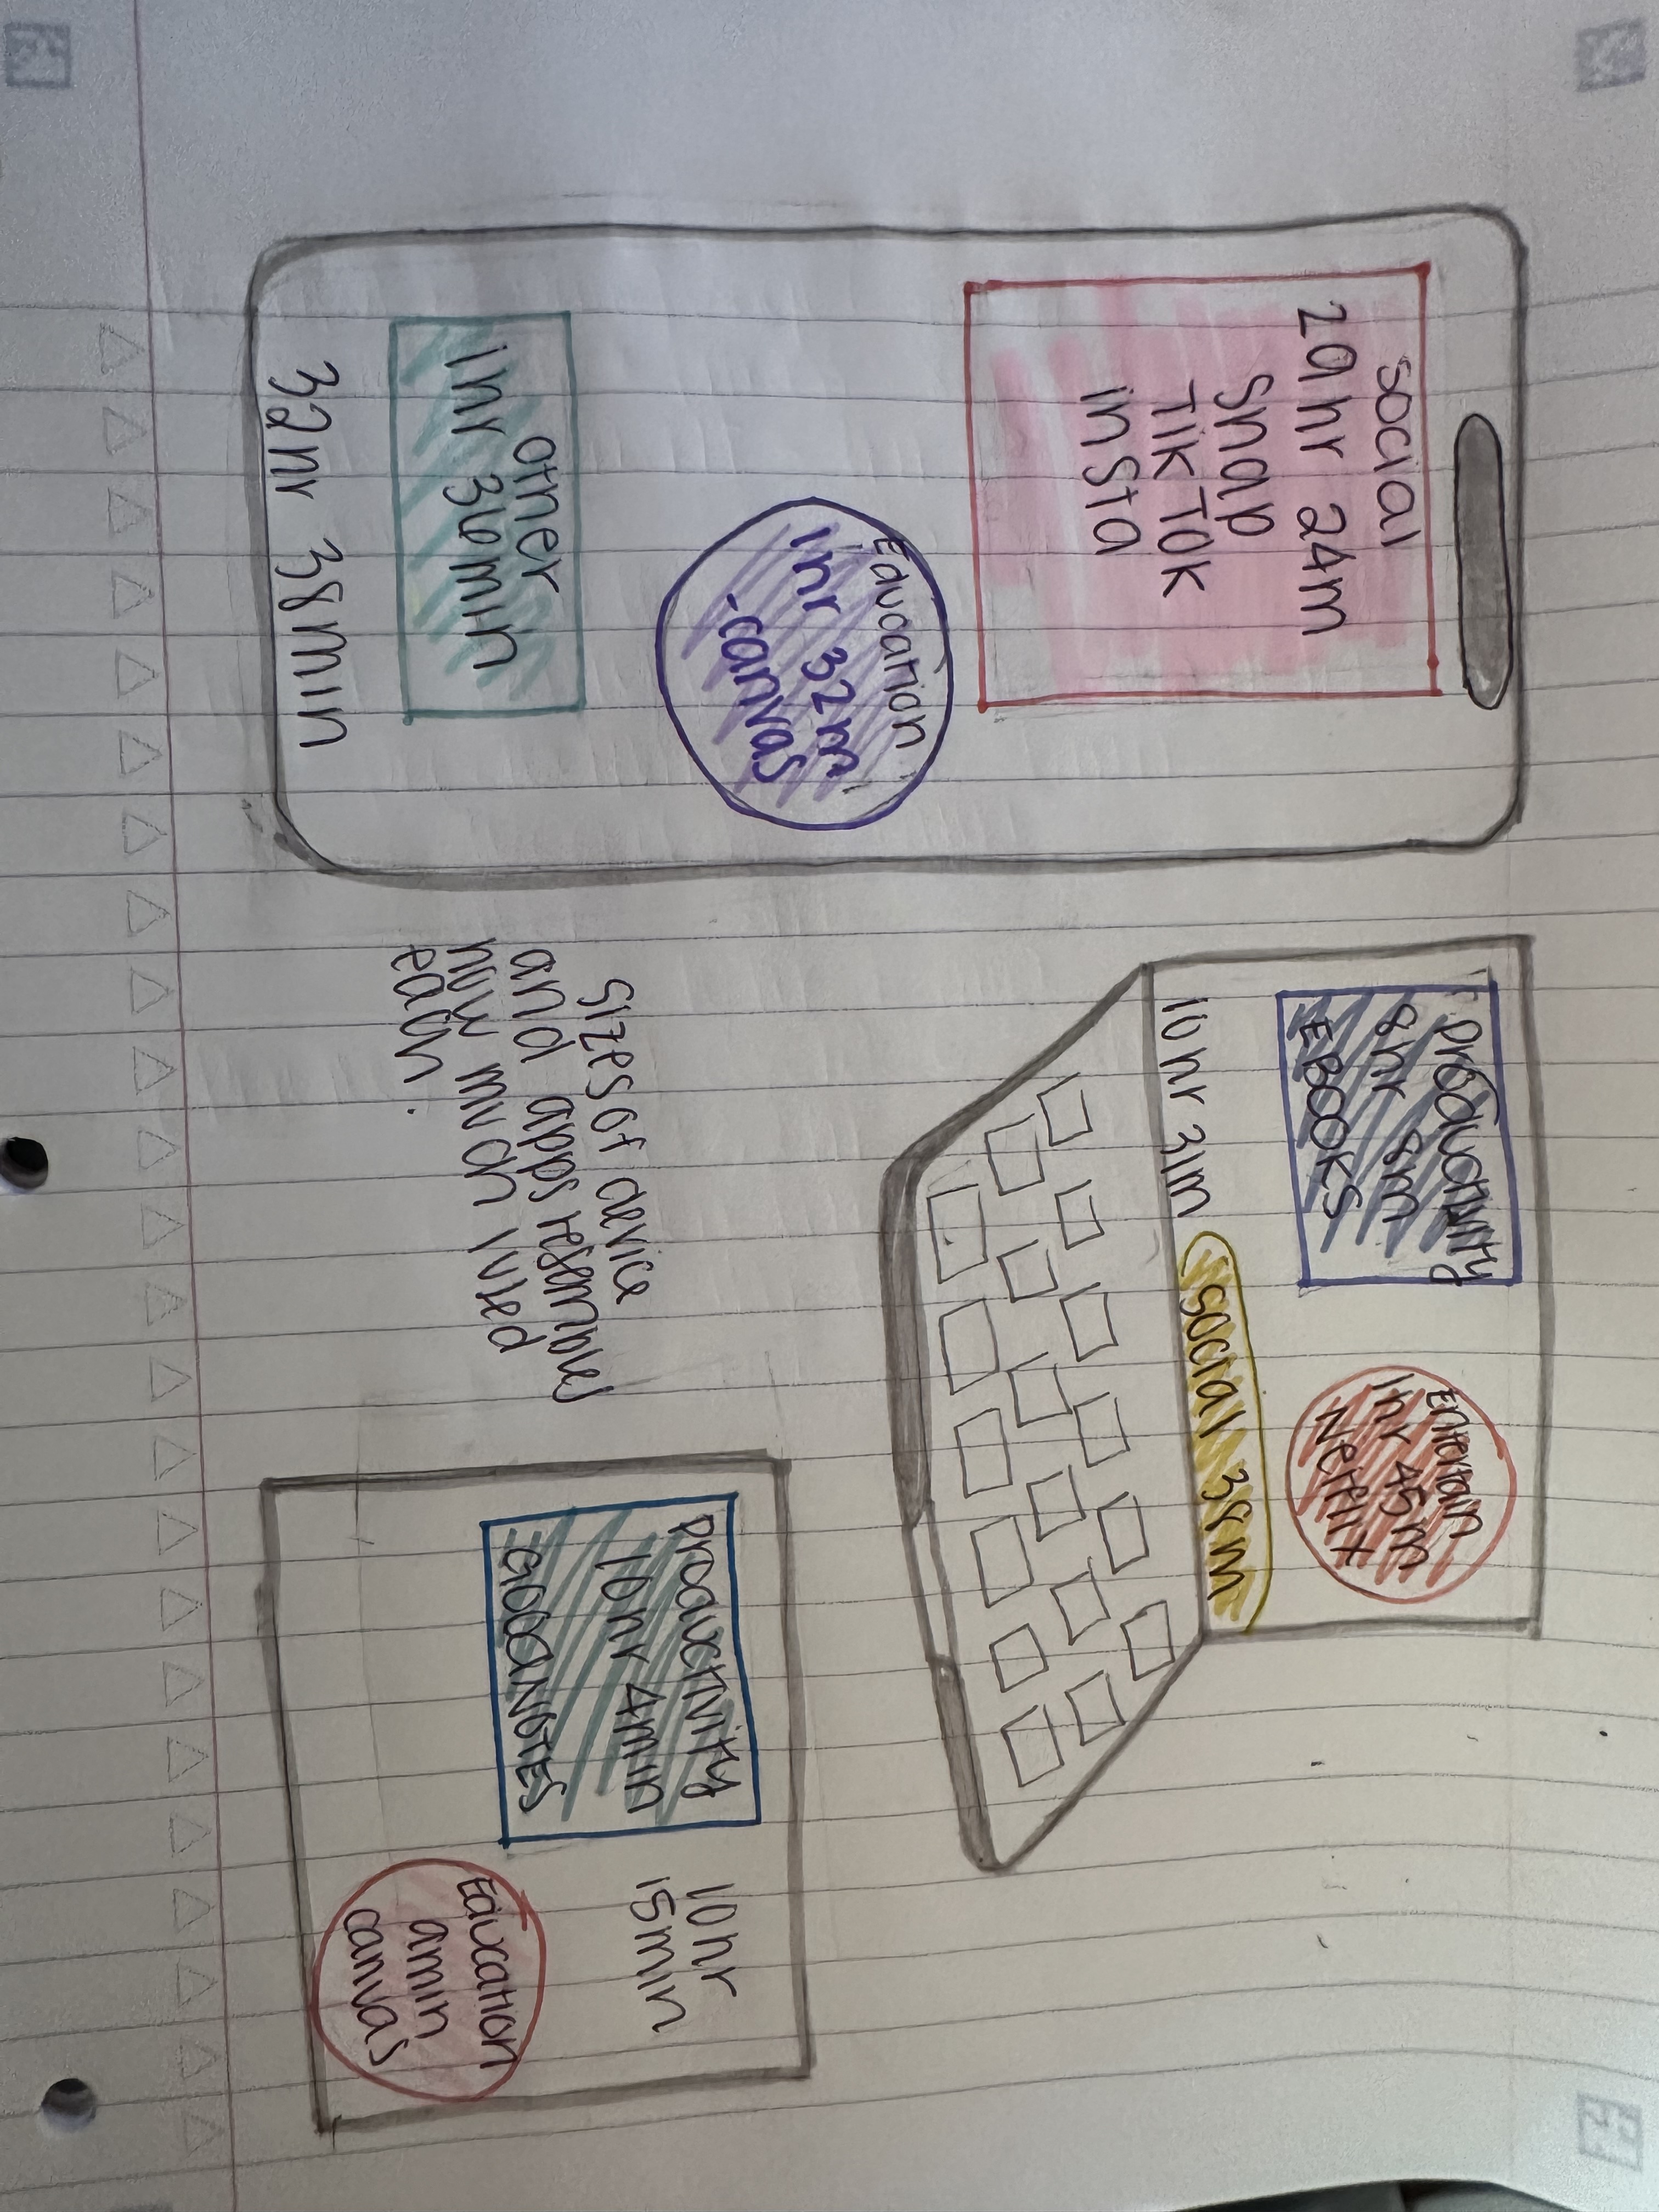 social
29 hr 24m
Snap
TikTok
insta
Education
1hr 32m
-canvas
other
1hr 36min
32hr 38min
productivity
8hr 8m
EBOOKS
Entertain
1hr 45m
Netflix
social 38m
10hr 31m
sizes of device
and apps resembles
how much I used
each.
productivity
10hr 4min
GOODNOTES
10hr
15min
Education
canvas